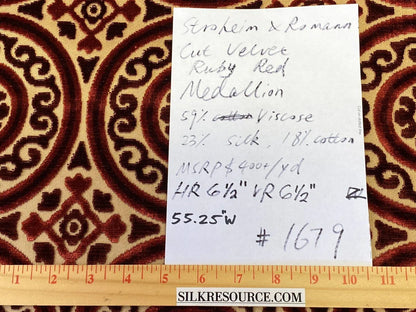 Stroheim & Romann
Cut Velvet
Ruby Red
Medallion
59% cotton Viscose
23% silk, 18% cotton
MSRP $400+/yd
HR 6½" VR 6½"
55.25"W
# 1679
1 2 3 4 5 6 7 8 9 10 11
SILKRESOURCE.COM